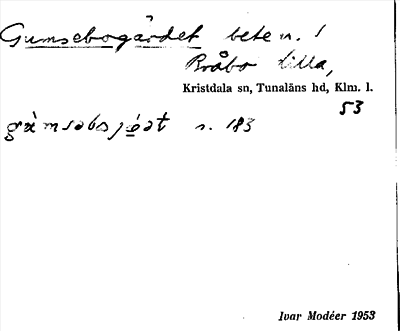 Gumsebogärdet bete n. 1
Bråbo Lilla,
Kristdala sn, Tunaläns hd, Klm. l.
53
s. 183
Ivar Modéer 1953